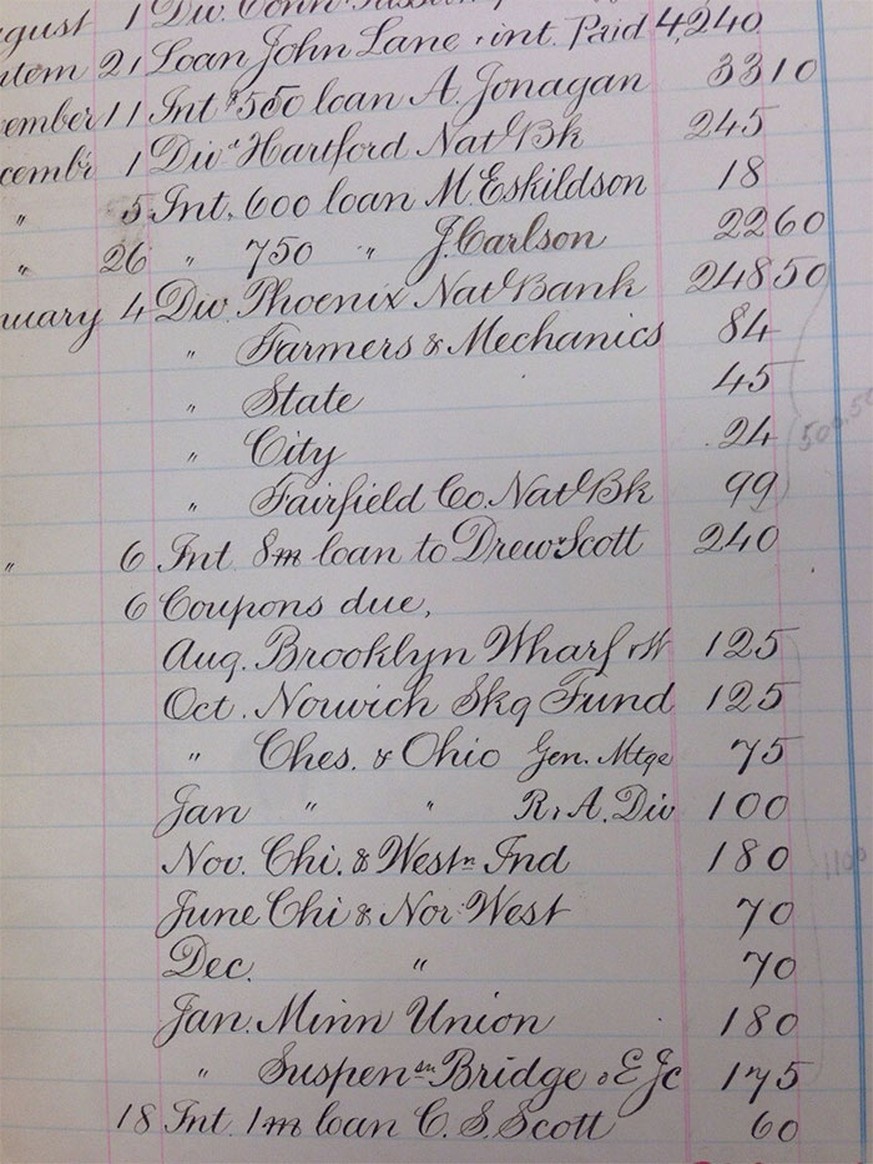 gust 1 Div. Conn
tem 21 Loan John Lane & int. Paid 4,240
ember 11 Int $550 loan A. Jonagan 33 10
cembr 1 Divd Hartford Natl Bk 245
" 5 Int. 600 loan M. Eskildson 18
" 26 " 750 " J. Carlson 22 60
nuary 4 Div. Phoenix Natl Bank 248 50
" Farmers & Mechanics 84
" State 45
" City 24
" Fairfield Co. Natl Bk 99
500.50
" 6 Int 8m loan to Drew & Scott 240
6 Coupons due,
Aug. Brooklyn Wharf & W 125
Oct. Norwich Skg Fund 125
" Ches. & Ohio Gen. Mtge 75
Jan " " R. & A. Div 100
Nov. Chi. & Westn Ind 180
1100
June Chi & Nor. West 70
Dec. " 70
Jan. Minn Union 180
" Suspensn Bridge & E Jc 175
18 Int. 1m loan C. S. Scott 60